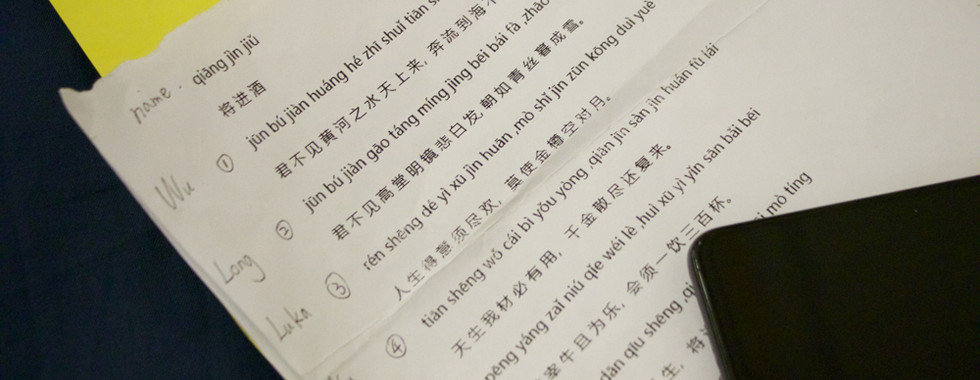 name. qiāng jìn jiǔ
将进酒
① jūn bú jiàn huáng hé zhī shuǐ tiān
君不见黄河之水天上来, 奔流到海不
Wu
② jūn bú jiàn gāo táng míng jìng bēi bái fà ,zhāo
君不见高堂明镜悲白发,朝如青丝暮成雪。
Long
③ rén shēng dé yì xū jìn huān ,mò shǐ jīn zūn kōng duì yuè
人生得意须尽欢, 莫使金樽空对月。
Luka
④ tiān shēng wǒ cái bì yǒu yòng ,qiān jīn sàn jìn huán fù lái
天生我材必有用, 千金散尽还复来。
pēng yáng zaǐ niú qiě wéi lè huì xū yì yǐn sān bǎi bēi
宰牛且为乐, 会须一饮三百杯。
dān qiū shēng
mò tíng
生, 将